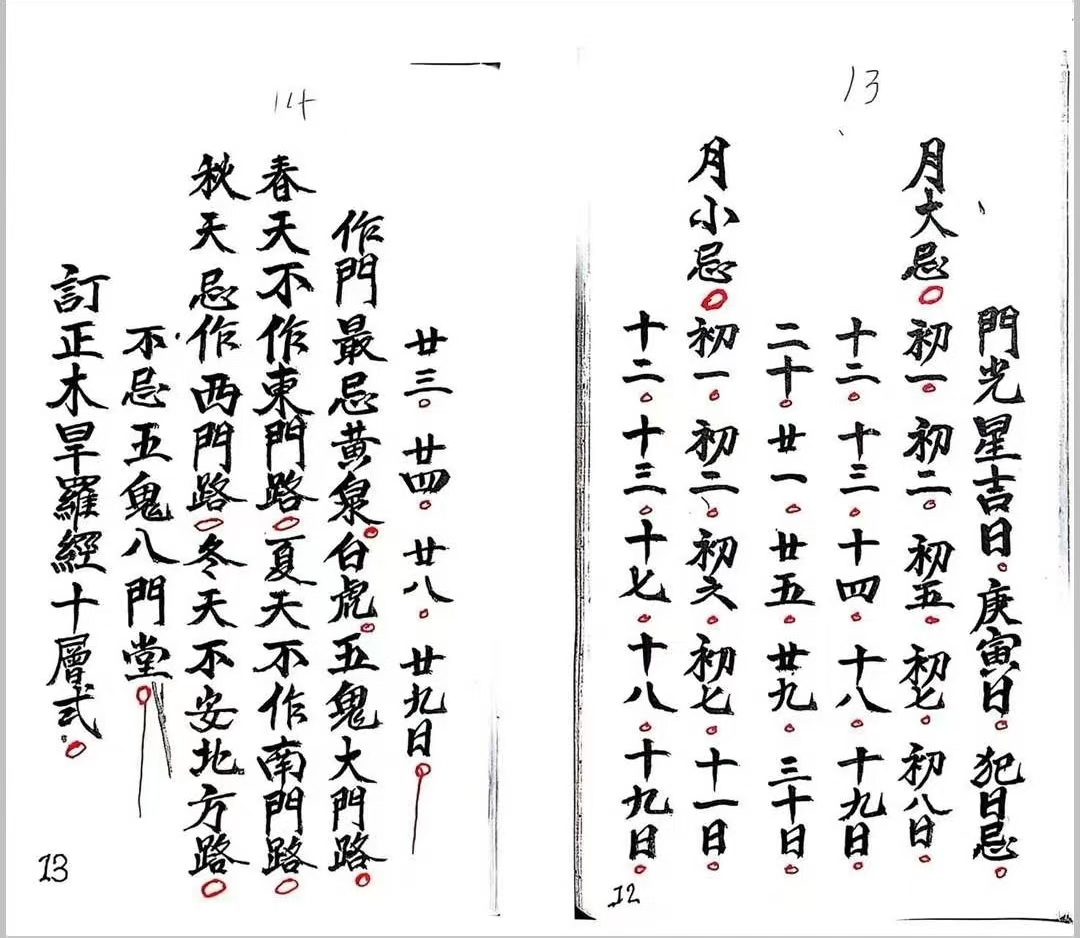 13
門光星吉日。庚寅日。犯日忌。
月大忌。初一。初二。初五。初七。初八日。
十二。十三。十四。十八。十九日。
二十。廿一。廿五。廿九。三十日。
月小忌。初一。初二。初六。初七。十一日。
十二。十三。十七。十八。十九日。
12
14
廿三。廿四。廿八。廿九日。
作門最忌黃泉。白虎。五鬼大門路。
春天不作東門路。夏天不作南門路。
秋天忌作西門路。冬天不安北方路。
不忌五鬼八門堂。
訂正木旱羅經十層式。
13